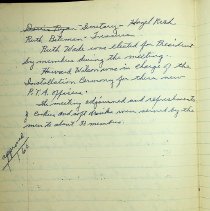 Doris Ryan - Secretary - Hazel Rash
Ruth Bateman - Treasurer
Ruth Wade was elected for President
by members during the meeting.
Howard Wilson was in charge of the
Installation Ceremony for these new
P.T.A. officers.
The meeting adjourned and refreshments
of cookies and soft drinks were served by the
men to about 75 members.
approved